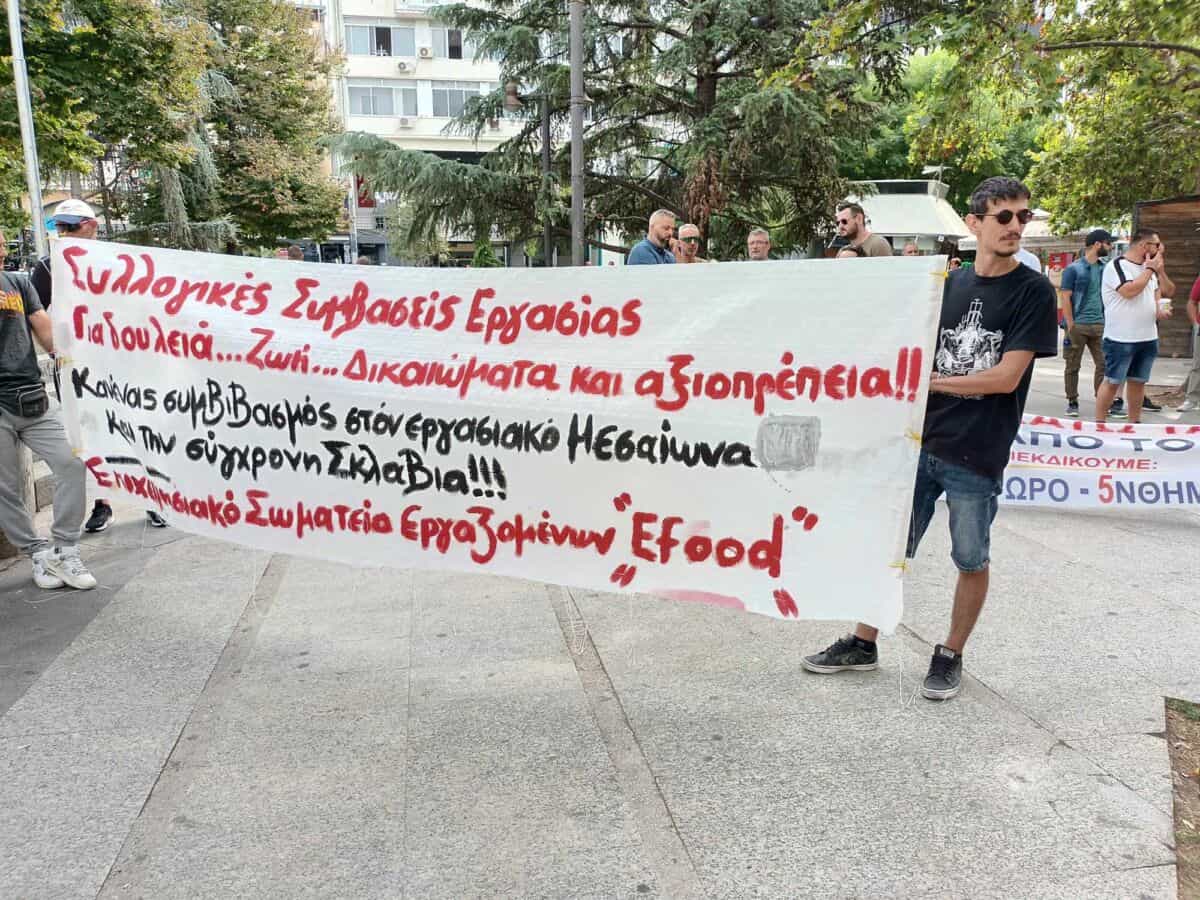 Συλλογικές Συμβάσεις Εργασίας
Για δουλειά... Ζωή... Δικαιώματα και αξιοπρέπεια!!
Κανένας συμβιβασμός στόν εργασιακό Μεσαίωνα
Και την σύγχρονη Σκλαβιά!!!
Επιχειρησιακό Σωματείο Εργαζομένων "Efood"
ΑΠΟ ΤΟ
ΔΙΕΚΔΙΚΟΥΜΕ:
ΩΡΟ - 5ΝΘΗΜ